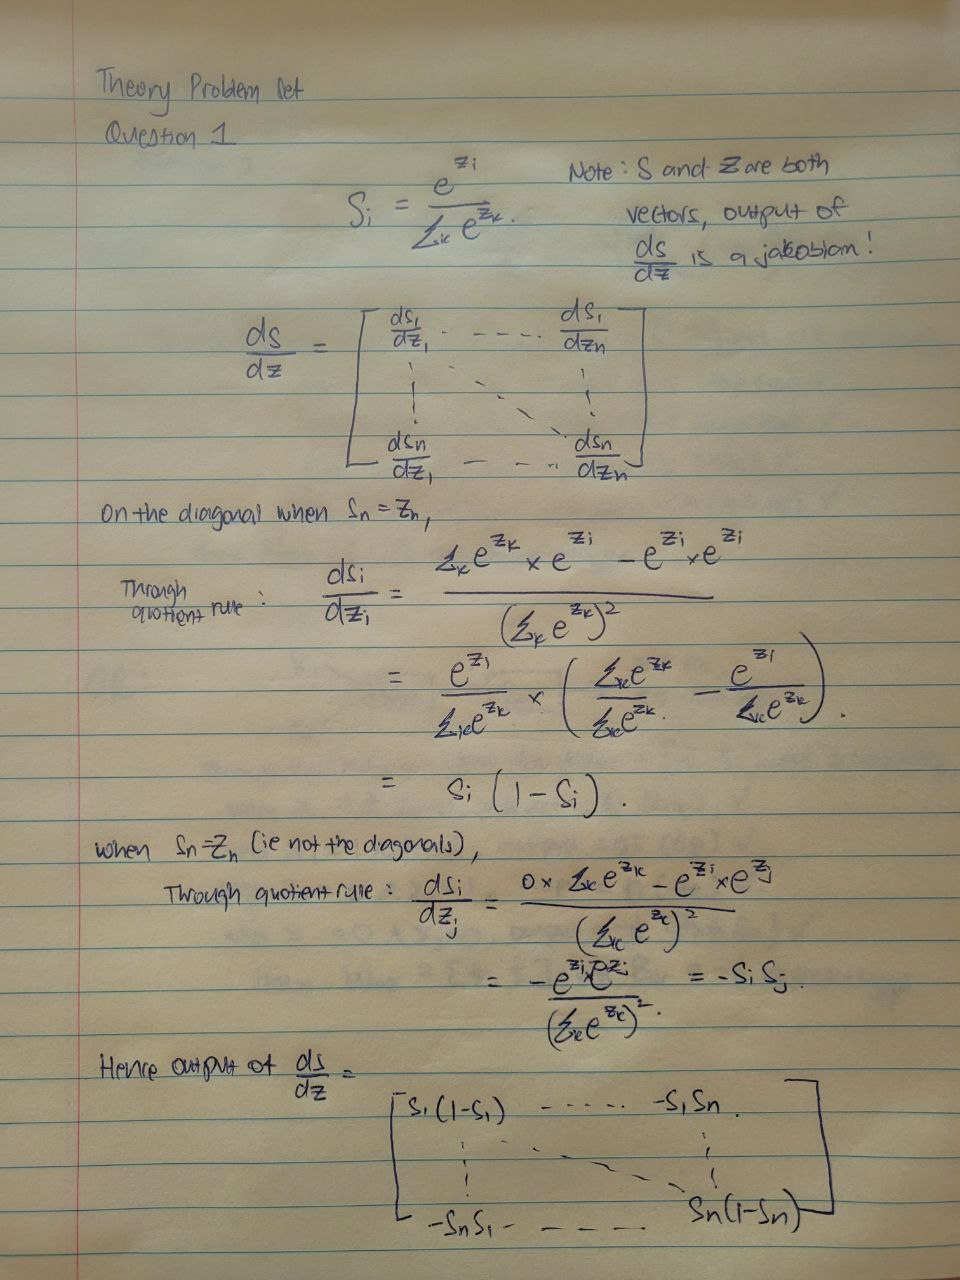 Theory Problem Set
Question 1
S_i = e^{z_i} / Σ_k e^{z_k}.
Note: S and Z are both
vectors, output of
ds/dz is a jakobian!
ds/dz = [ ds_1/dz_1 - - - - ds_1/dz_n
ds_n/dz_1 - - - ds_n/dz_n ]
On the diagonal when S_n = Z_n,
Through quotient rule : ds_i/dz_i = (Σ_k e^{z_k} × e^{z_i} - e^{z_i} × e^{z_i}) / (Σ_k e^{z_k})^2
= e^{z_i} / Σ_k e^{z_k} × ( Σ_k e^{z_k} / Σ_k e^{z_k} - e^{z_i} / Σ_k e^{z_k} ).
= S_i (1 - S_i).
when S_n = Z_n (ie not the diagonals),
Through quotient rule : ds_i/dz_j = (0 × Σ_k e^{z_k} - e^{z_i} × e^{z_j}) / (Σ_k e^{z_k})^2
= - e^{z_i} × e^{z_j} / (Σ_k e^{z_k})^2. = -S_i S_j.
Hence output of ds/dz =
[ S_1(1-S_1) - - - - - -S_1S_n.
-S_nS_1 - - - - - S_n(1-S_n) ]